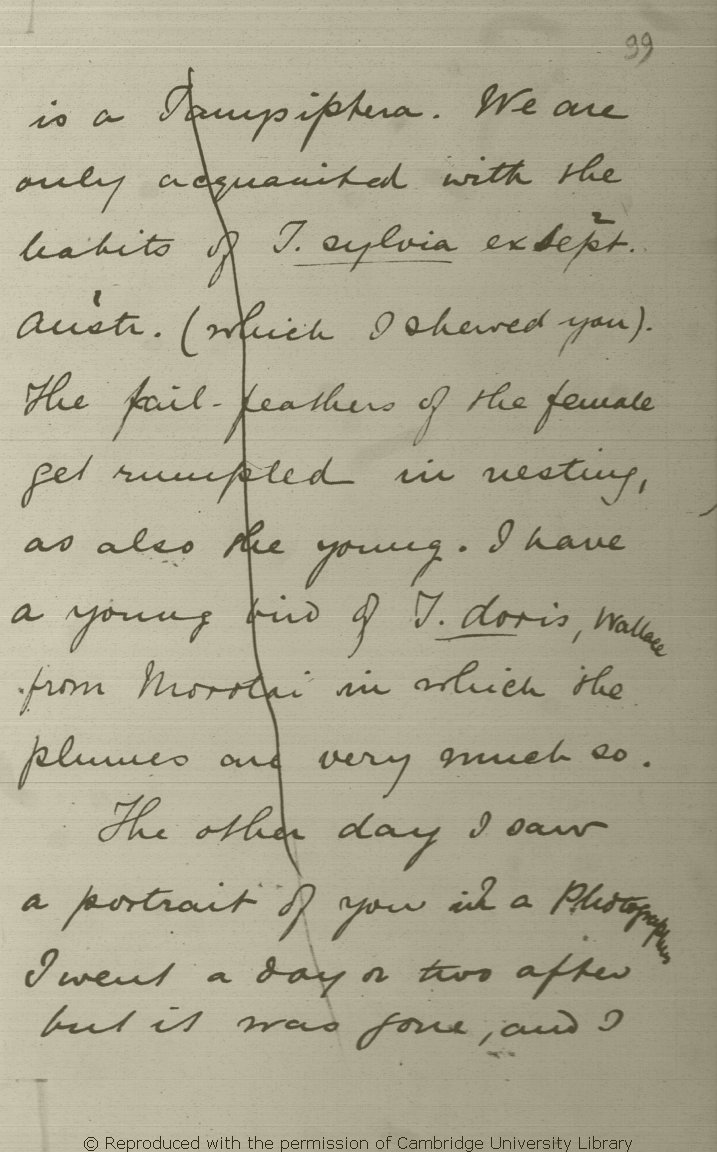 99
is a Tanysiptera. We are
only acquainted with the
habits of T. sylvia except.
Austr. (which I shewed you).
The tail-feathers of the female
get rumpled in nesting,
as also the young. I have
a young bird of T. doris, Wallace
from Morotai in which the
plumes are very much so.
The other day I saw
a portrait of you in a Photographers
I went a day or two after
but it was gone, and I
© Reproduced with the permission of Cambridge University Library